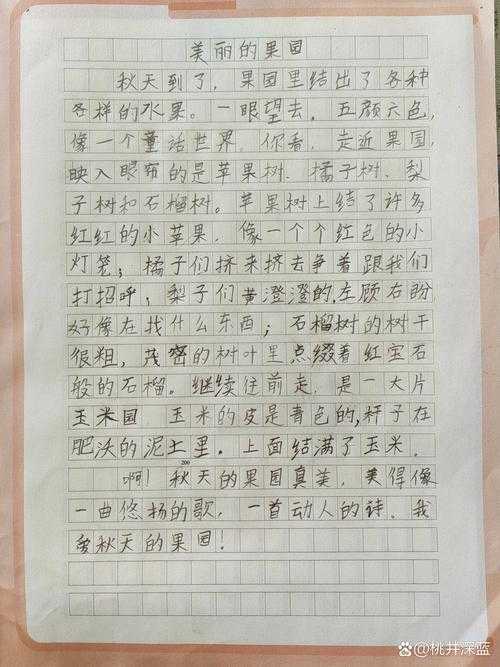 美丽的果园
秋天到了，果园里结出了各种
各样的水果。一眼望去，五颜六色，
像一个童话世界。你看，走近果园，
映入眼帘的是苹果树、橘子树、梨
子树和石榴树。苹果树上结了许多
红红的小苹果，像一个个红色的小
灯笼；橘子们挤来挤去争着跟我们
打招呼；梨子们黄澄澄的，左顾右盼
好像在找什么东西；石榴树的树干
很粗，茂密的树叶里点缀着红宝石
般的石榴。继续往前走，是一大片
玉米园 玉米的皮是青色的，杆子在
肥沃的泥土里。上面结满了玉米。
200
啊！秋天的果园真美，美得像
一曲悠扬的歌，一首动人的诗。我
爱秋天的果园！
@桃井深蓝